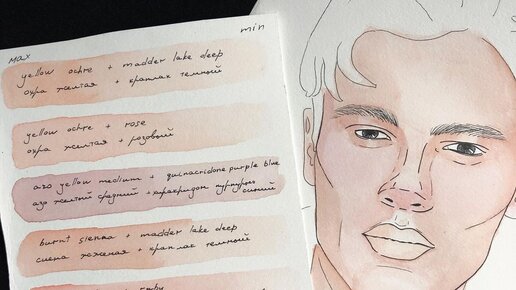 max
min
yellow ochre + madder lake deep
охра желтая + краплак темный
yellow ochre + rose
охра желтая + розовый
azo yellow medium + quinacridone purple blue
азо желтый средний + хинакридон пурпурно
синий
burnt sienna + madder lake deep
сиена жженая + краплак темный
ruby